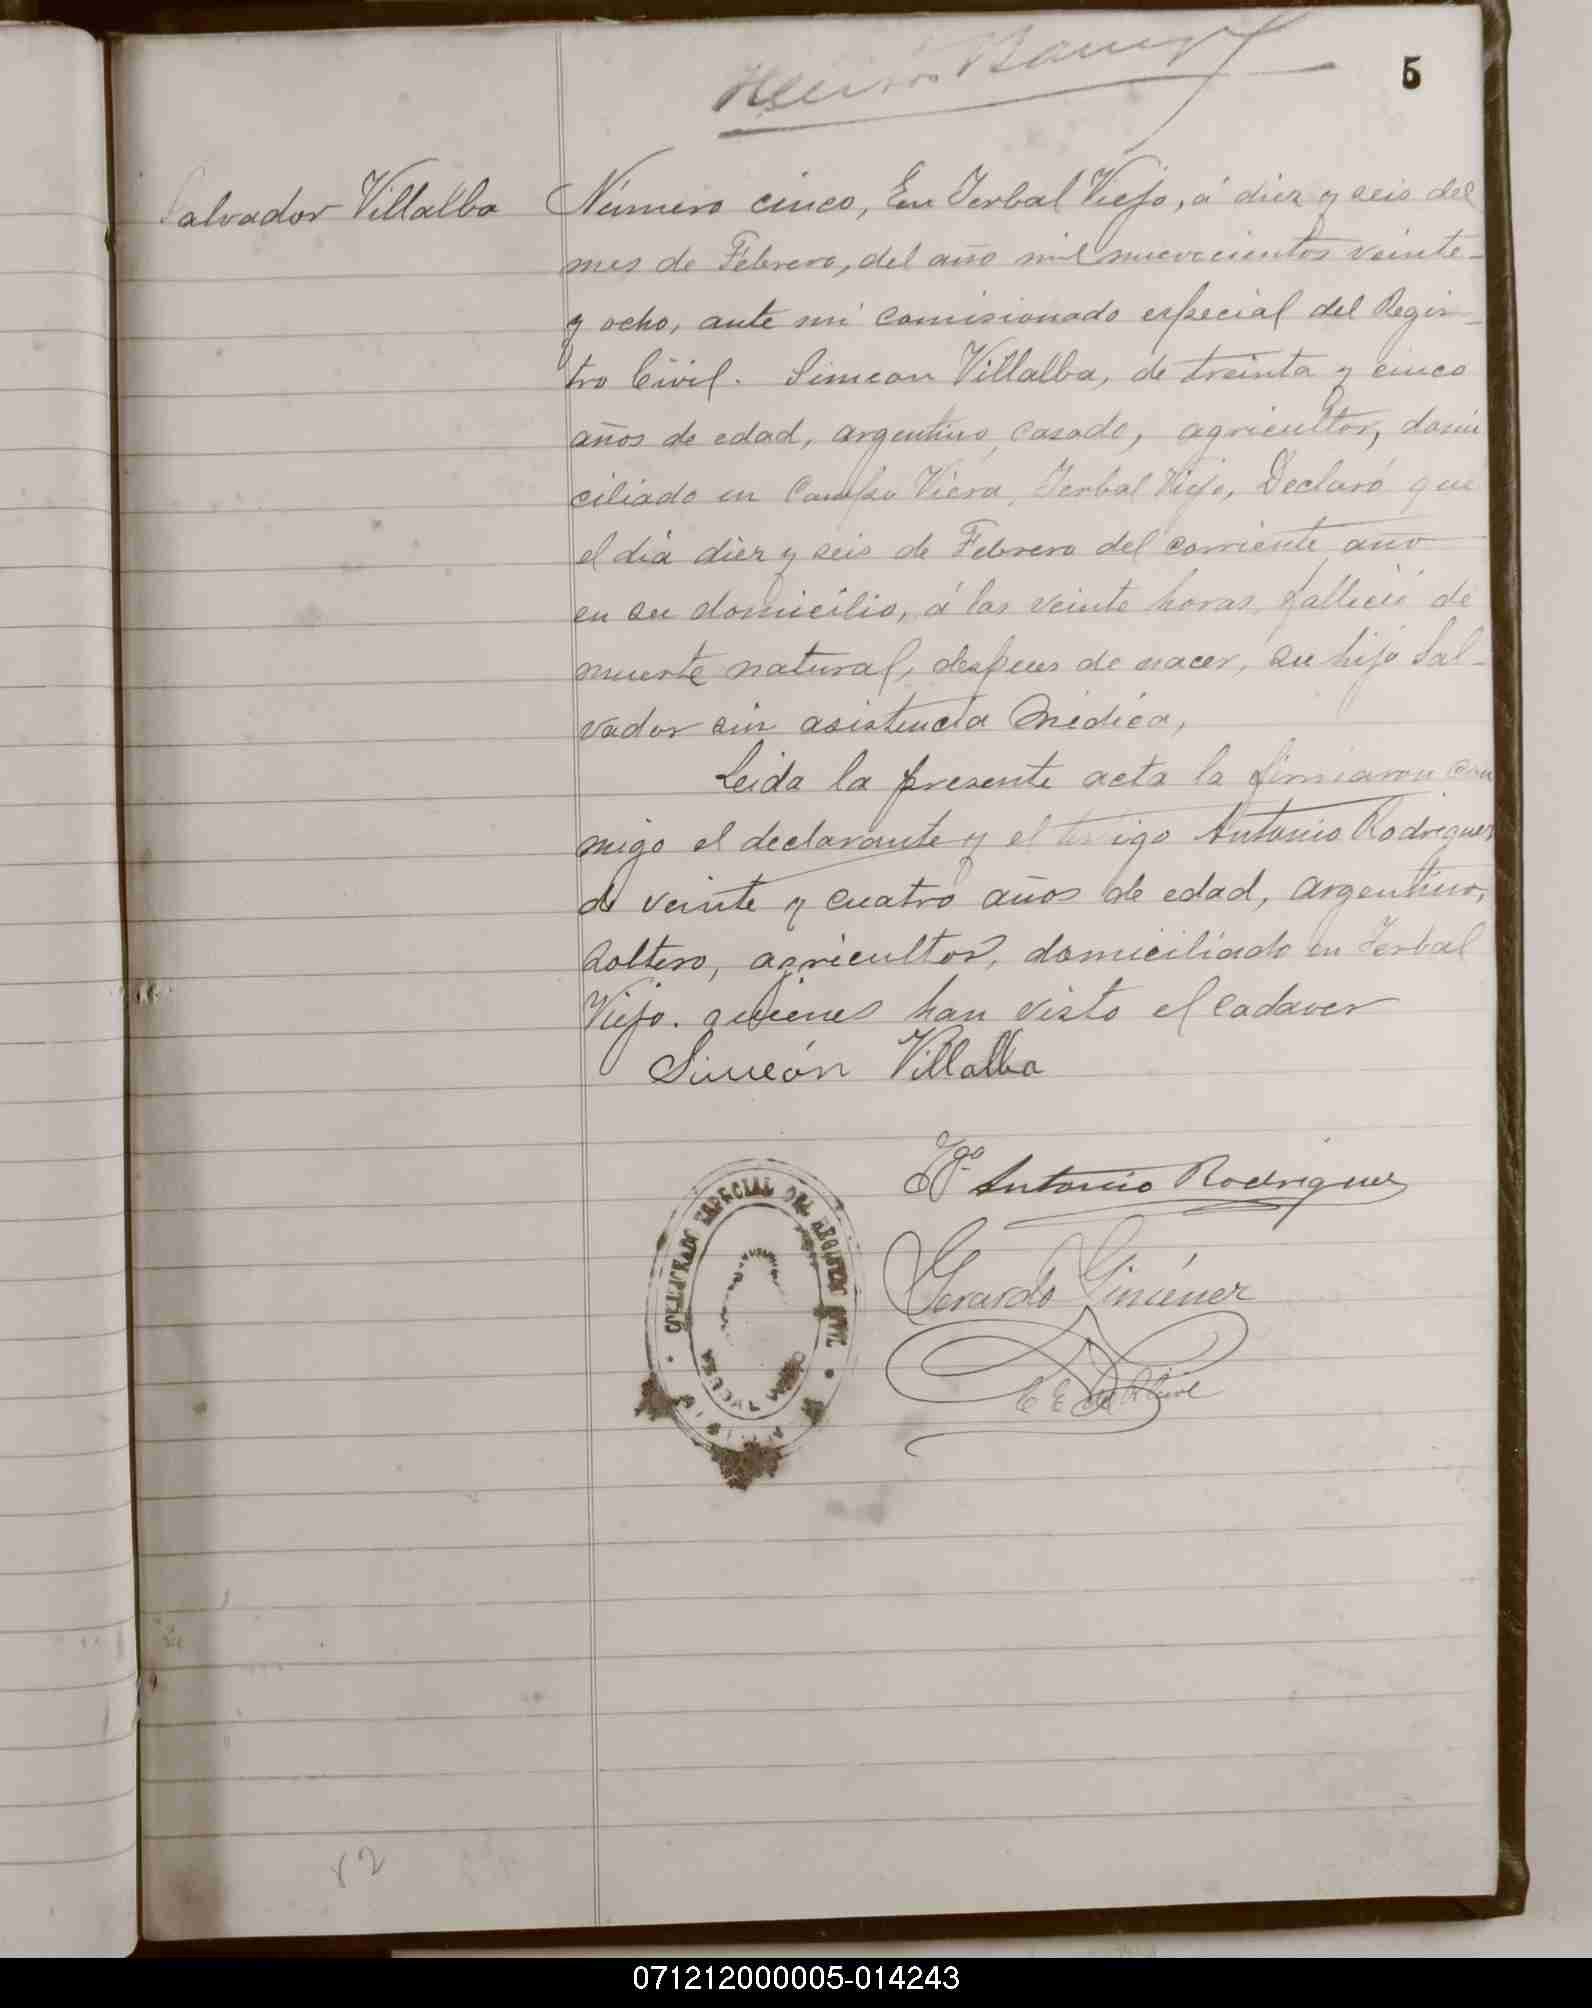 5
Salvador Villalba
Número cinco, En Yerbal Viejo, á diez y seis del
mes de Febrero, del año mil nuevecientos veinte-
y ocho, ante mi comisionado especial del Regis-
tro Civil. Simeon Villalba, de treinta y cinco
años de edad, argentino, casado, agricultor, domi
ciliado en Campo Viera, Yerbal Viejo, Declaró que
el dia diez y seis de Febrero del corriente año
en su domicilio, á las veinte horas, falleció de
muerte natural, despues de nacer, su hijo Sal-
vador sin asistencia Médica,
Leida la presente acta la firmaron con
migo el declarante y el testigo Antonio Rodriguez
de veinte y cuatro años de edad, argentino,
Soltero, agricultor, domiciliado en Yerbal
Viejo. quienes han visto el cadaver
Simeón Villalba
Tgo. Antonio Rodriguez
Gerardo Giménez
ESPECIAL DEL REGISTRO CIVIL
82
071212000005-014243